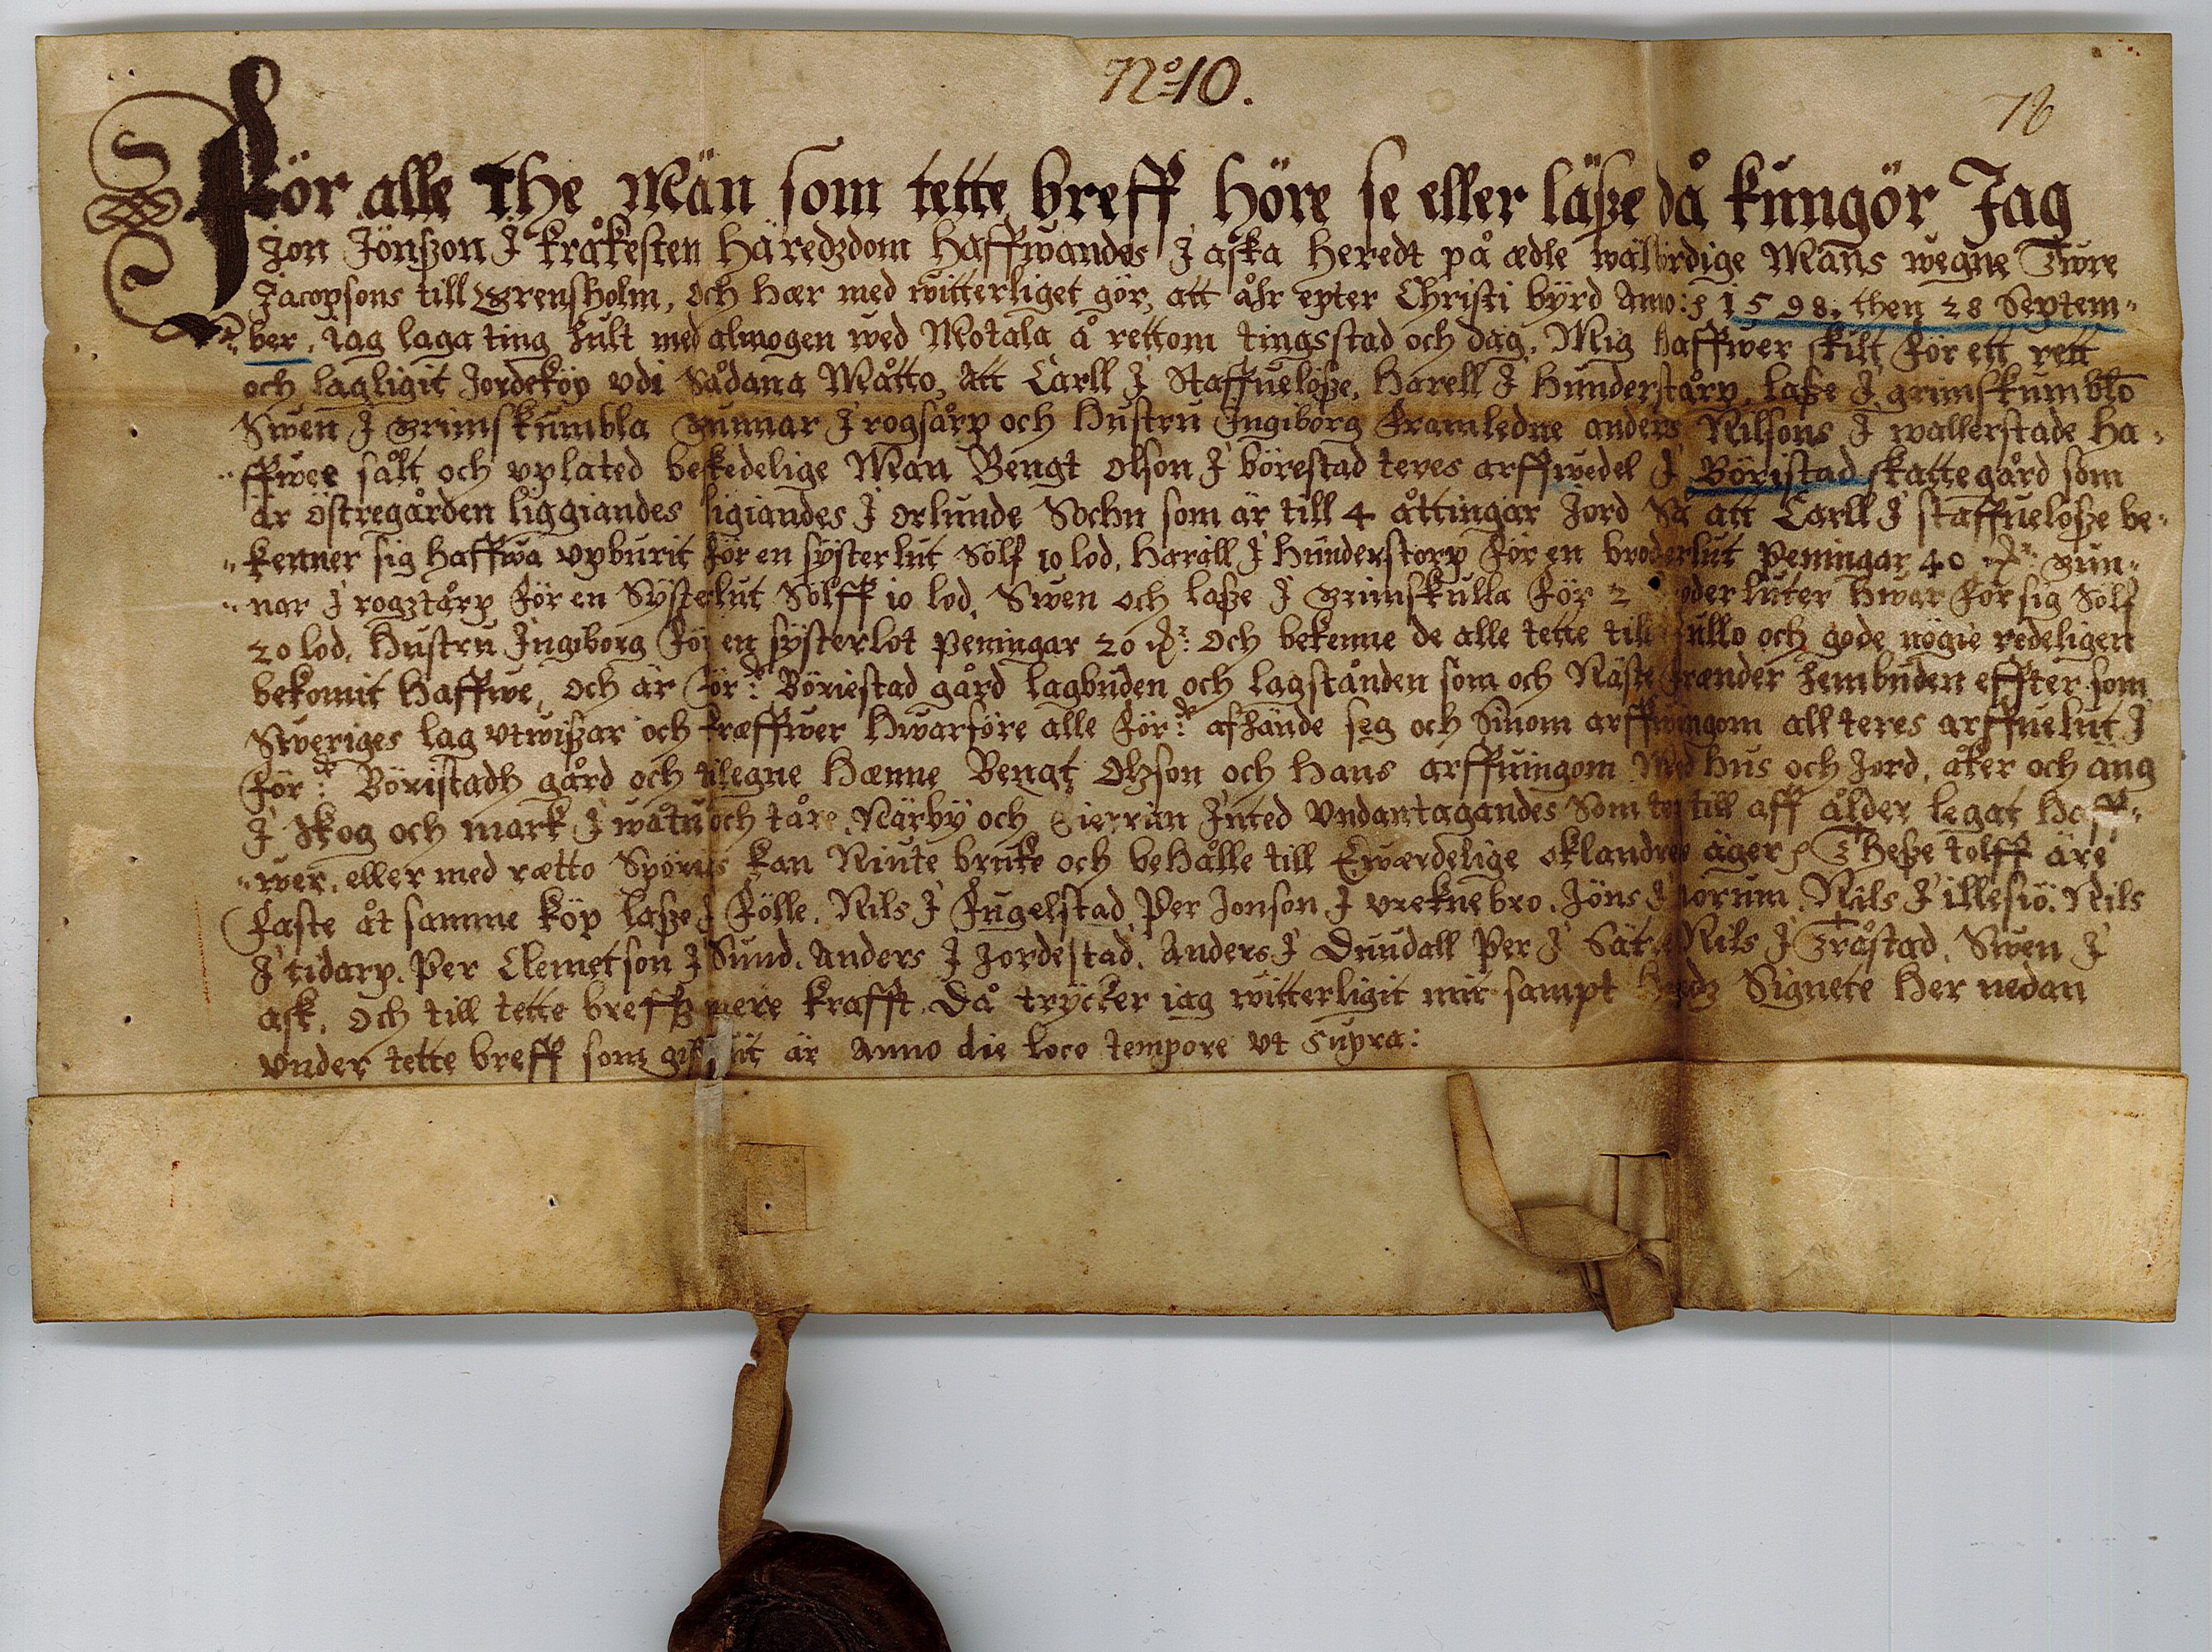 No 10.
78
För alle The Män som tette breff höre se eller läsze då kungör Jag
Jon Jönszon J kråkesten Häredzdom Haffwandes J aska Heredt på ædle wälbirdige Mans wegne Twre
Jacopsons till Grensholm, och hær med witterliget gör, att åhr epter Christi byrd Anno: 1598. then 28 Septem-
ber, Jag laga ting hult med almogen wed Motala å rettom tingsstad och dag, Mig haffwer skilt för ett rett
och lagligit Jordeköp vdi Sådana Måtto, Att Carll J Staffueløsze, Harell J Hunderstårp, lasze J grimskumblo
Swen J Grimskumbla gunnar J rogsårp och Hustru Ingiborg framledne anders Nilsons J wallerstade Ha-
ffwer sålt och vplated beskedelige Man Bengt olson J börestad teres arffwedel J Böristad skattegård som
är östregården liggiandes ligiandes J orlunde Sochn som är till 4 åttingar Jord Så att Carll J staffueløsze be-
kenner sig haffwa vpburit för en systerlut Sölf 10 lod, Haräll J Hunderstorp för en broderlut peningar 40 dr: gun-
nar J rogztårp för en Systerlut Sölff 10 lod, Swen och lasze J Grimskulla för 2 oder luter hwar for sig Sölf
20 lod, Hustru Ingiborg för en systerlot peningar 20 dr: och bekenne de alle tette till fullo och gode nögie redeligen
bekomit haffwe, och är för:de Böriestad gård lagbuden och lagstånden som och Näste frænder hembuden effter som
Sweriges lag vtwiszar och kræffwer Hwarföre alle för:de afhände seg och Sinom arffwingom all teres arffuelut J
för:de Böristadh gård och tilegne Hænne Bengt Olszon och hans arffuingom Med hus och Jord, åker och äng
J skog och mark J wåtu och tåre, Närby och fierran Inted Vndantagandes Som ter till aff ålder legat haff-
wer, eller med rætto Spöries kan Niute bruke och behålle till Ewærdelige oklandree äger Thesze tolff äre
faste åt samme köp lasze J fölle, Nils J fugelstad, Per Jonson J vreknebro, Jöns J lorum, Nils J illesiö, Nils
J tidarp, Per Clemetson J Sund, Anders J Jordestad, Anders J Duudall Per J Säter Nils J Tråstad, Swen J
ask, och till tette breffz mere krafft, Då trycker iag witterligit mit sampt Hedz Signete her nedan
vnder tette breff som giffuit är Anno die loco tempore vt supra: